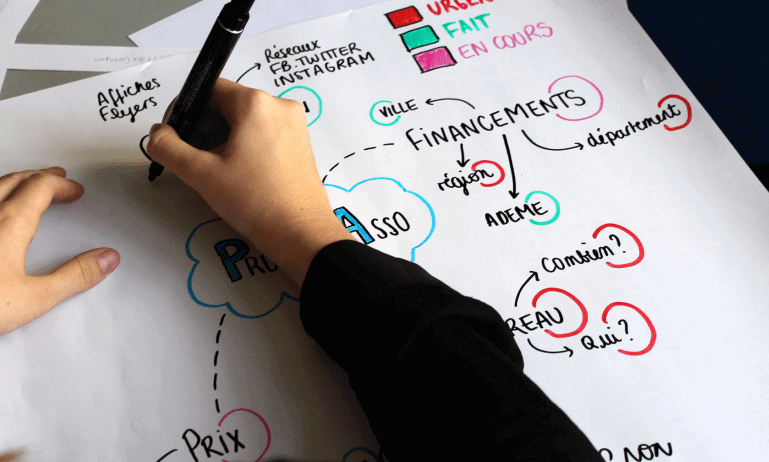 URGENT
FAIT
EN COURS
Réseaux
FB. TWITTER
INSTAGRAM
Affiches
Flyers
VILLE
FINANCEMENTS
département
région
ADEME
ASSO
PRO
Combien?
REAU
Qui?
PRIX
NON